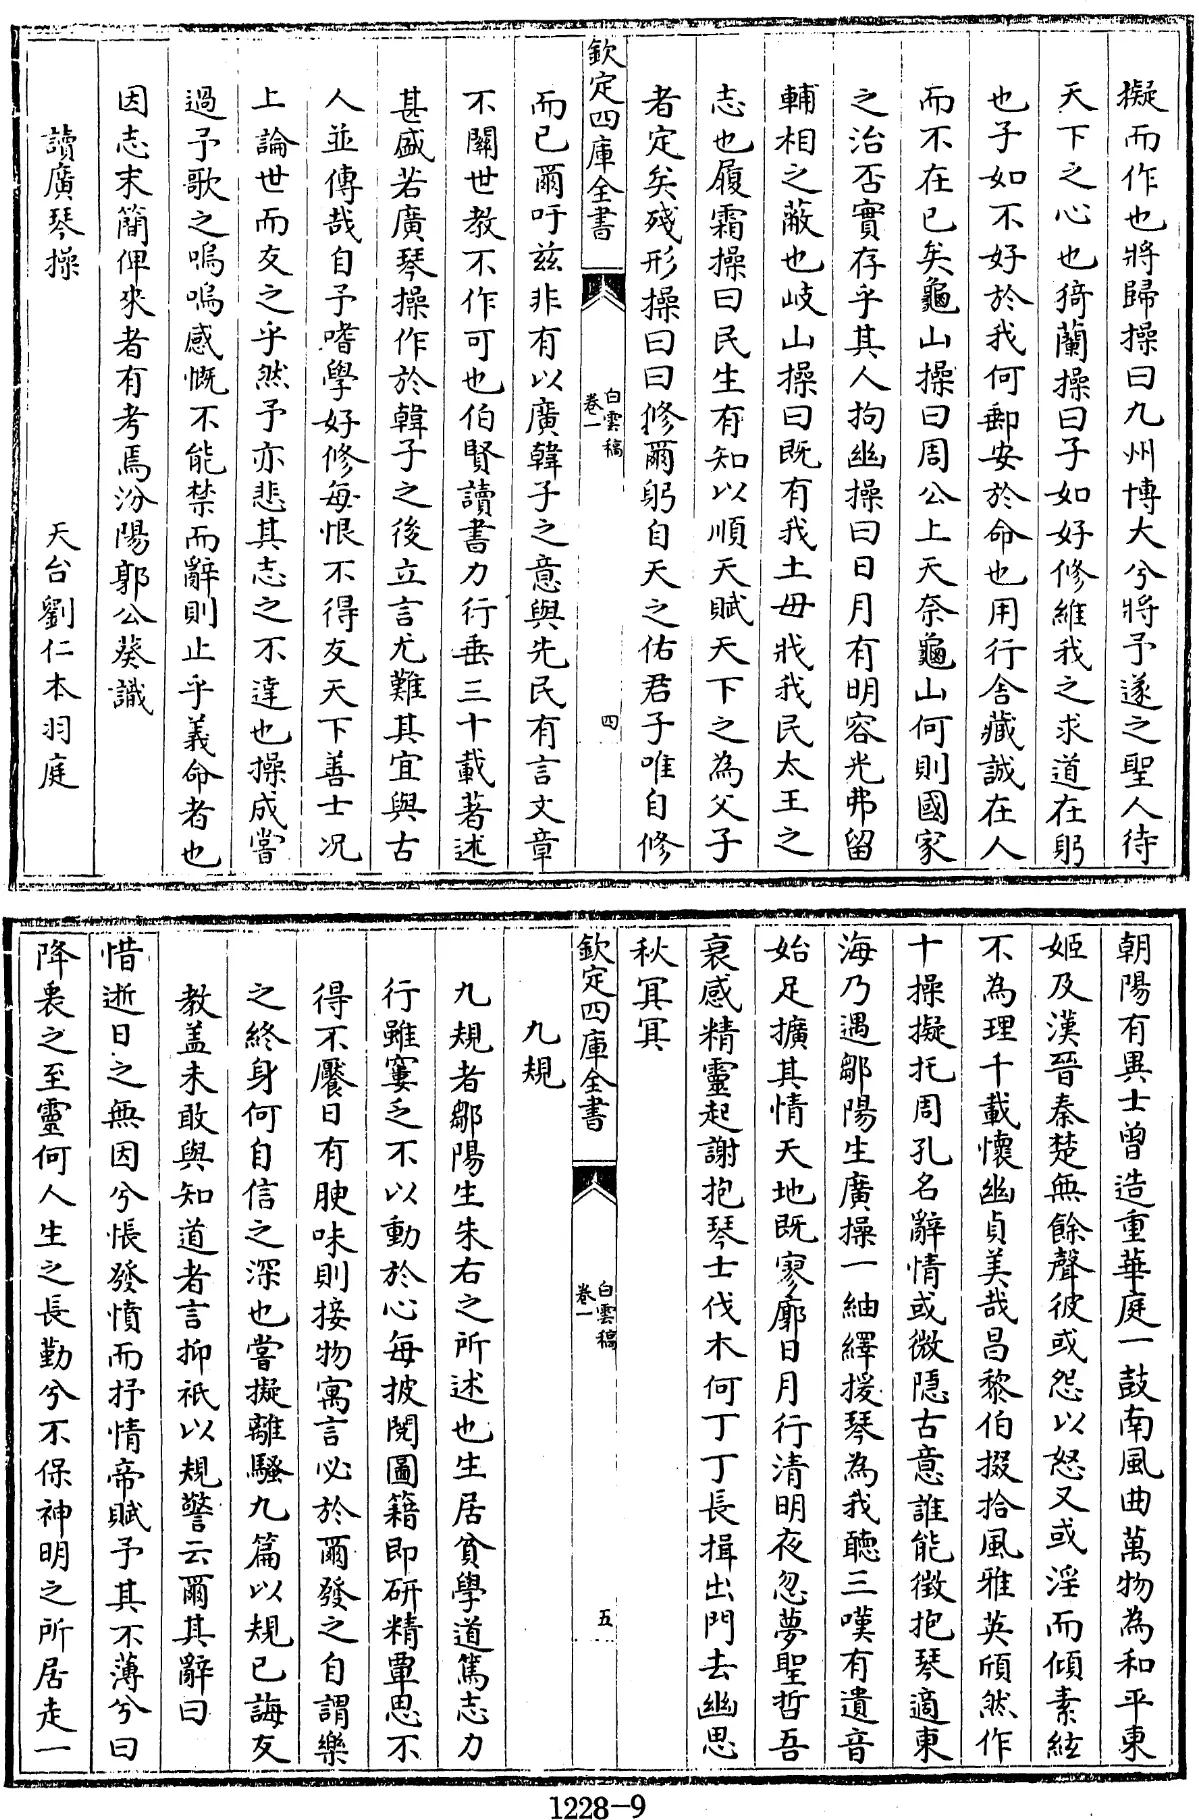 擬而作也將歸操曰九州博大兮將予遂之聖人待
天下之心也猗蘭操曰子如好修維我之求道在躬
也子如不好於我何郵安於命也用行舍藏誠在人
而不在已矣龜山操曰周公上天奈龜山何則國家
之治否實存乎其人拘幽操曰日月有明容光弗留
輔相之蔽也岐山操曰既有我土毋戕我民太王之
志也履霜操曰民生有知以順天賦天下之為父子
者定矣殘形操曰曰修爾躬自天之佑君子唯自修
欽定四庫全書
白雲稿
卷一
四
而已爾吁兹非有以廣韓子之意與先民有言文章
不關世教不作可也伯賢讀書力行垂三十載著述
甚盛若廣琴操作於韓子之後立言尤難其宜與古
人並傳哉自予嗜學好修每恨不得友天下善士况
上論世而友之乎然予亦悲其志之不達也操成嘗
過予歌之嗚嗚感慨不能禁而辭則止乎義命者也
因志末簡俾來者有考焉汾陽郭公葵識
讀廣琴操
天台劉仁本羽庭
朝陽有異士曾造重華庭一鼓南風曲萬物為和平東
姬及漢晉秦楚無餘聲彼或怨以怒又或淫而傾素絃
不為理千載懷幽貞美哉昌黎伯掇拾風雅英頎然作
十操擬托周孔名辭情或微隱古意誰能徵抱琴適東
海乃遇鄒陽生廣操一紬繹援琴為我聽三嘆有遺音
始足擴其情天地既寥廓日月行清明夜忽夢聖哲吾
衰感精靈起謝抱琴士伐木何丁丁長揖出門去幽思
秋冥冥
欽定四庫全書
白雲稿
卷一
五
九規
九規者鄒陽生朱右之所述也生居貧學道篤志力
行雖窶乏不以動於心每披閱圖籍即研精覃思不
得不饜日有腴味則接物寓言必於爾發之自謂樂
之終身何自信之深也嘗擬離騷九篇以規已誨友
教盖未敢與知道者言抑祇以規警云爾其辭曰
惜逝日之無因兮悵發憤而抒情帝賦予其不薄兮曰
降衷之至靈何人生之長勤兮不保神明之所居走一
1228-9